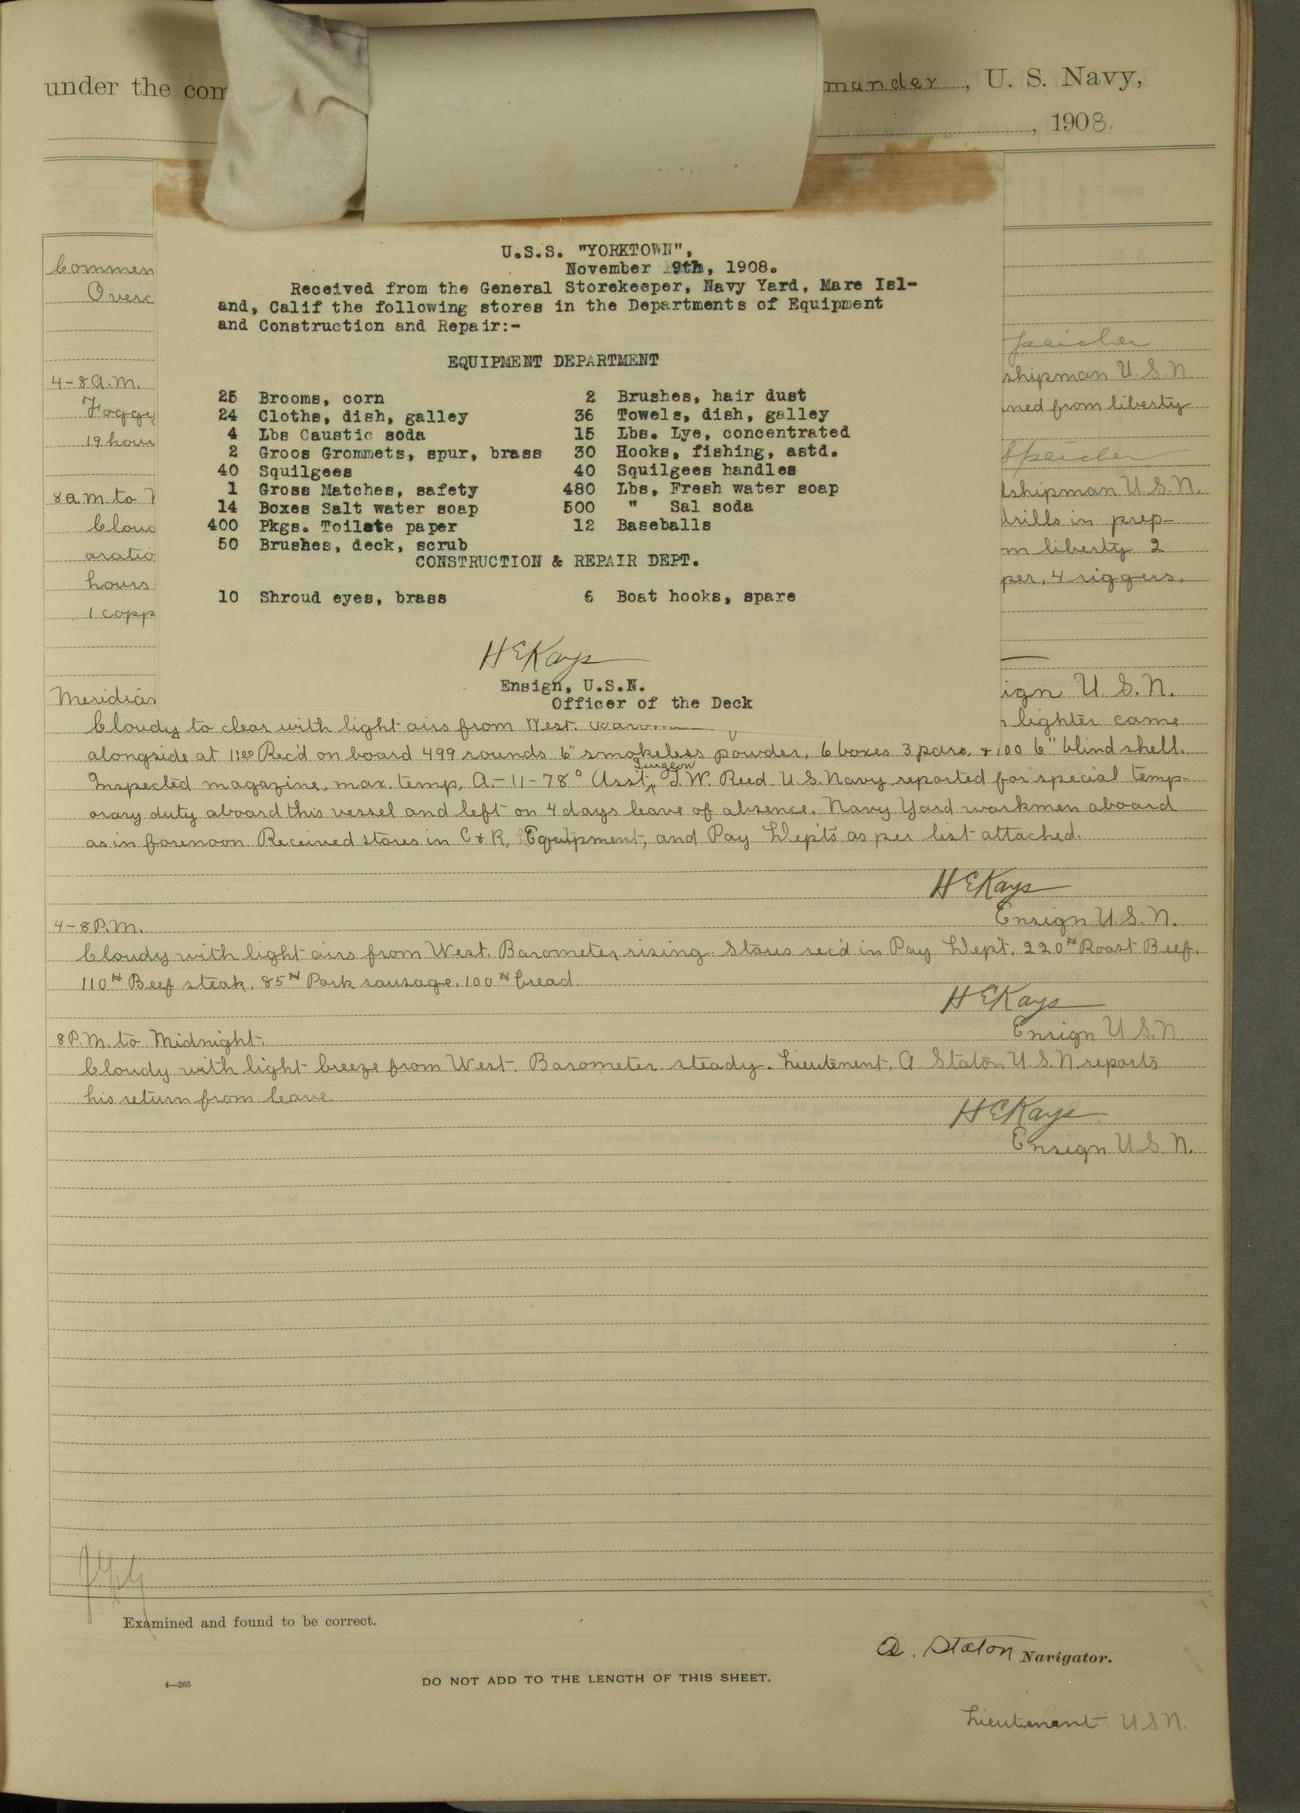 under the com
mander, U. S. Navy,
, 1908.
U.S.S. "YORKTOWN",
November 9th, 1908.
Received from the General Storekeeper, Navy Yard, Mare Isl-
and, Calif the following stores in the Departments of Equipment
and Construction and Repair:-
EQUIPMENT DEPARTMENT
25 Brooms, corn 2 Brushes, hair dust
24 Cloths, dish, galley 36 Towels, dish, galley
4 Lbs Caustic soda 15 Lbs. Lye, concentrated
2 Groos Grommets, spur, brass 30 Hooks, fishing, astd.
40 Squilgees 40 Squilgees handles
1 Gross Matches, safety 480 Lbs, Fresh water soap
14 Boxes Salt water soap 500 " Sal soda
400 Pkgs. Toilete paper 12 Baseballs
50 Brushes, deck, scrub
CONSTRUCTION & REPAIR DEPT.
10 Shroud eyes, brass 6 Boat hooks, spare
H E Kays
Ensign, U.S.N.
Officer of the Deck
Commen
Overc
Speicher
shipman U.S.N.
4-8 A.M.
Foggy
ned from liberty
19 hour
Speicher
8 a.m. to
dshipman U.S.N.
Cloud
drills in prep-
aratio
m liberty 2
hours
per, 4 riggers.
1 copp
Meridian
ign U.S.N.
Cloudy to clear with light airs from West.
lighter came
alongside at 1:00 Rec'd on board 499 rounds 6" smokeless powder, 6 boxes 3 pdrs. & 100 6" blind shell.
Inspected magazine, max. temp. A-11-78° Asst. Surgeon T.W. Reed U.S. Navy reported for special temp-
orary duty aboard this vessel and left on 4 days leave of absence. Navy Yard workmen aboard
as in forenoon. Received stores in C & R, Equipment, and Pay Dep'ts as per list attached.
H E Kays
Ensign U.S.N.
4-8 P.M.
Cloudy with light airs from West. Barometer rising. Stores rec'd in Pay Dep't. 220# Roast Beef.
110# Beef steak, 85# Pork sausage, 100# bread.
H E Kays
Ensign U.S.N.
8 P.M. to Midnight.
Cloudy with light breeze from West. Barometer steady. Lieutenent. A Staton U.S.N. reports
his return from leave.
H E Kays
Ensign U.S.N.
Examined and found to be correct.
A. Staton Navigator.
4—265
DO NOT ADD TO THE LENGTH OF THIS SHEET.
Lieutenant U.S.N.